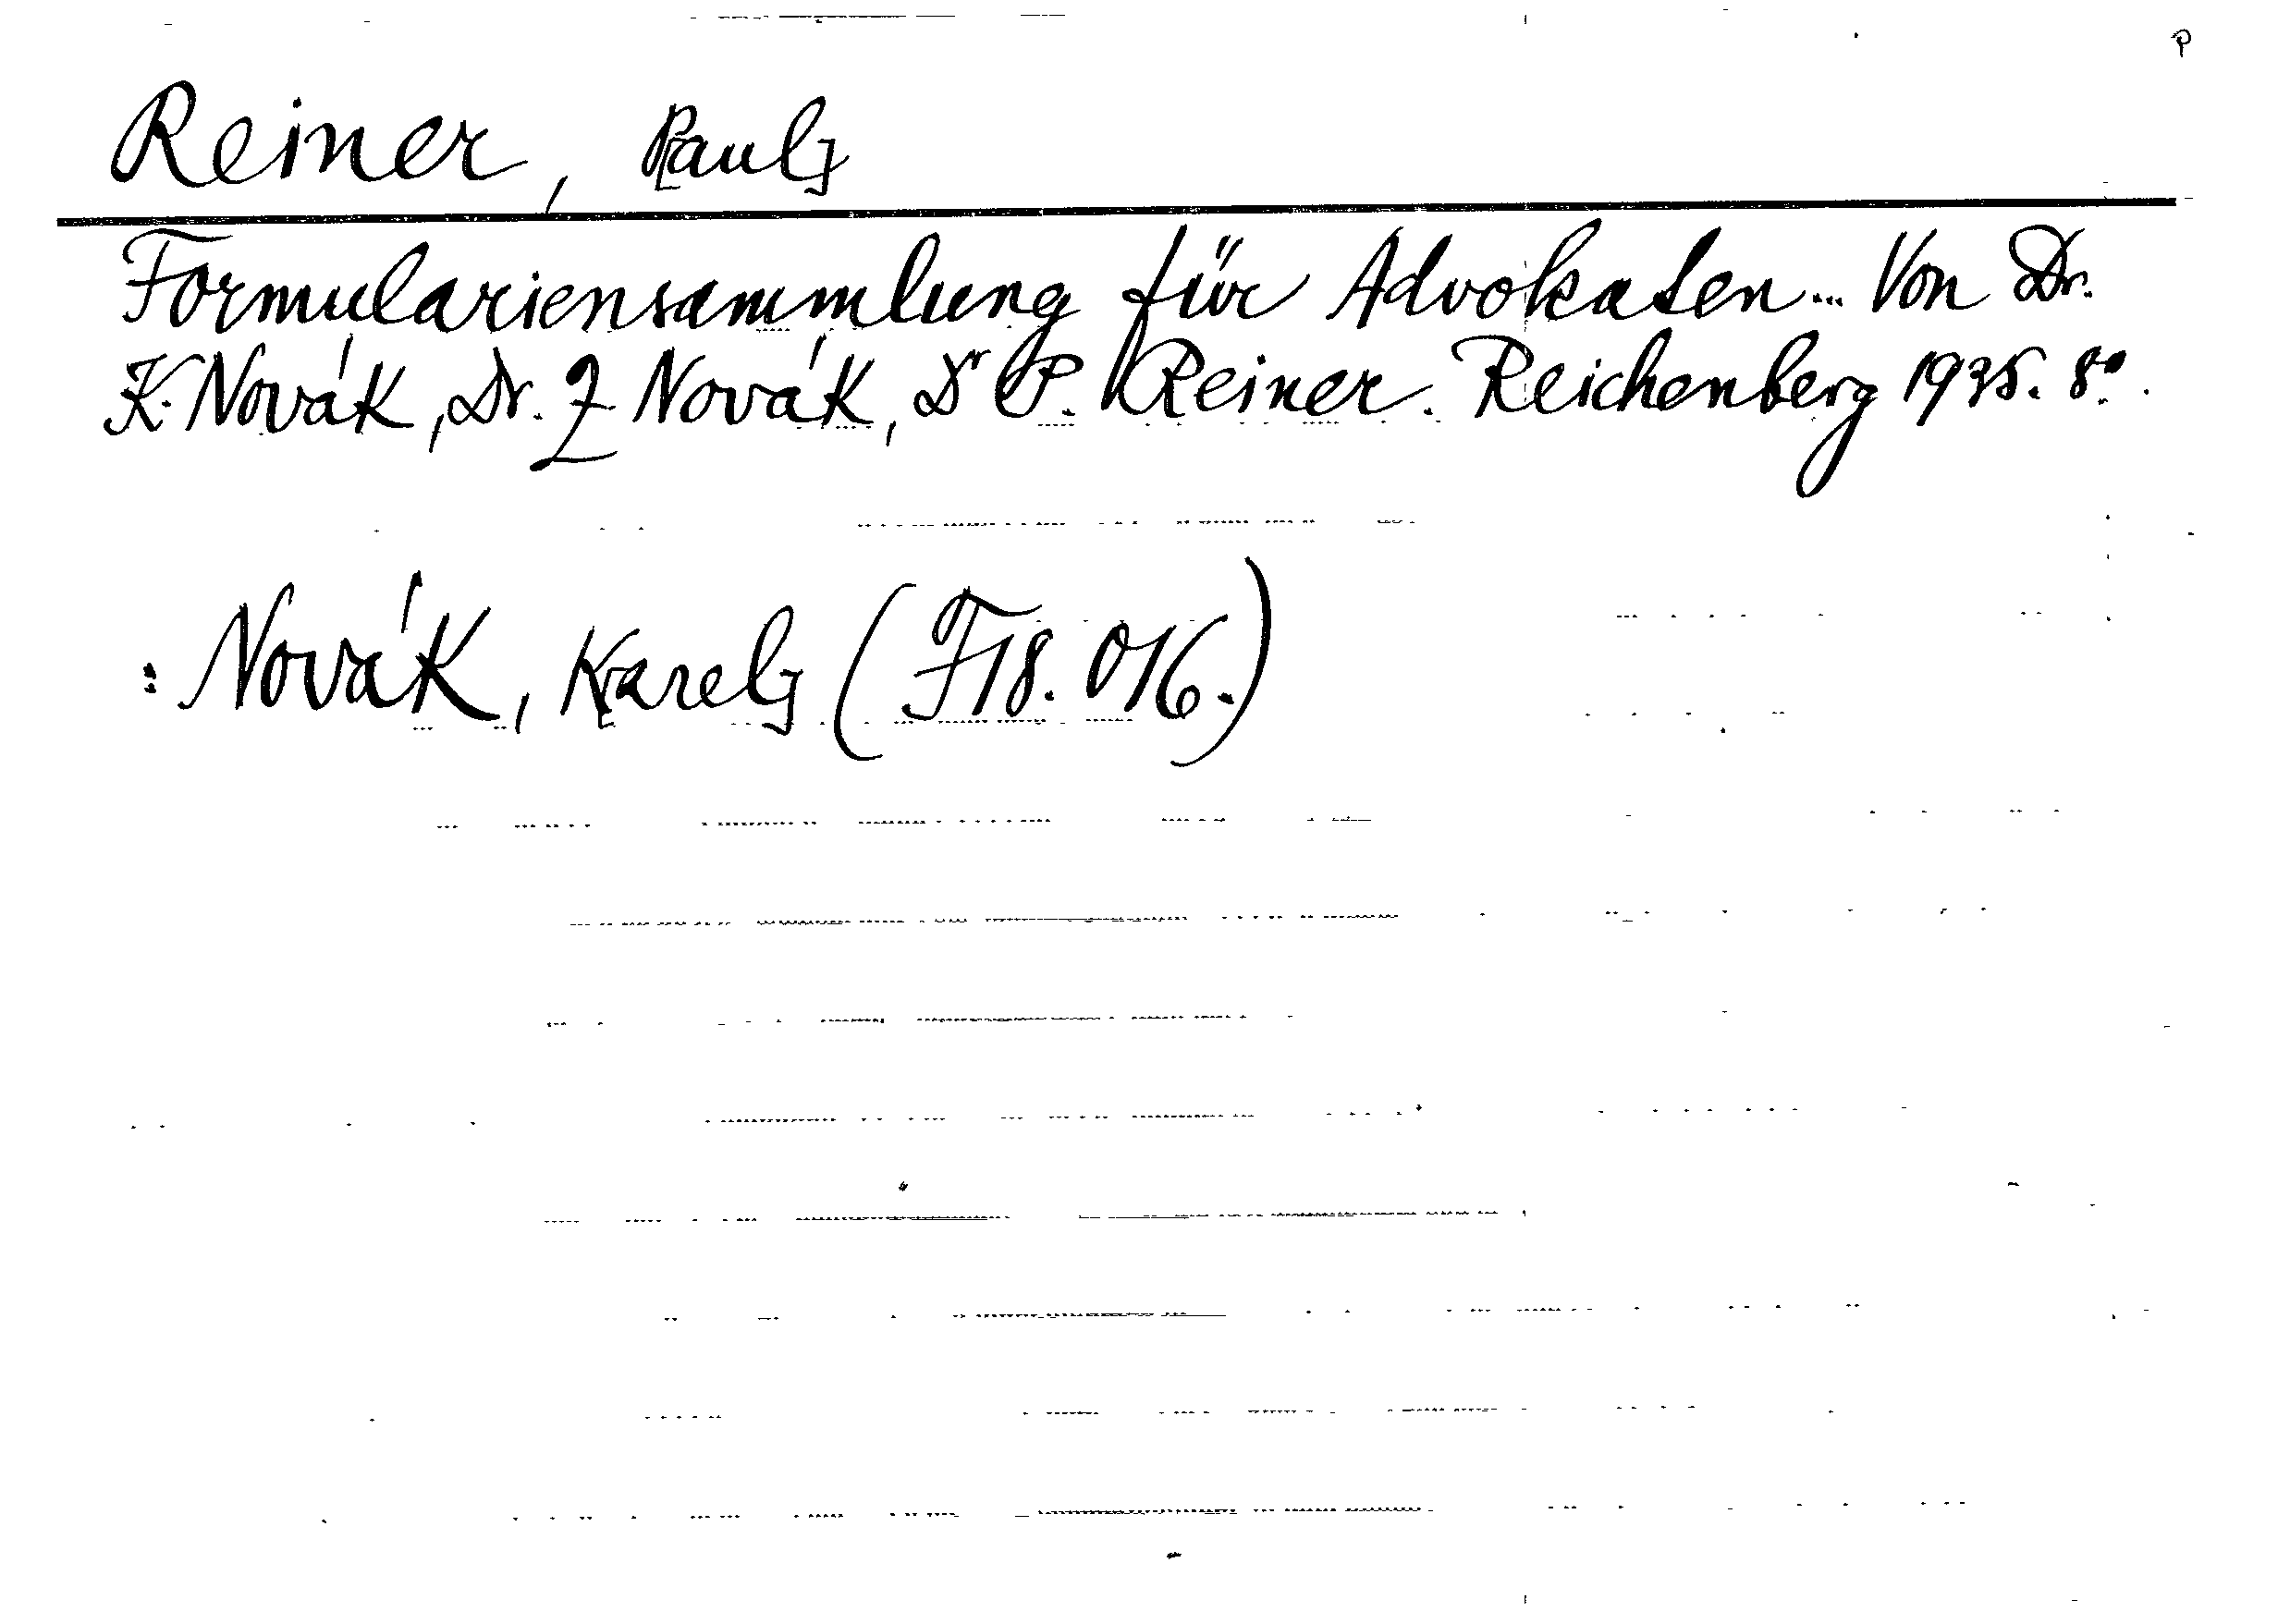 P
Reiner, P[aul]
Formulariensammlung für Advokaten... Von Dr.
K. Novák, Dr. Z Novák, Dr P. Reiner. Reichenberg 1935. 8°.
: Novák, K[arel] (F 18. 016.)